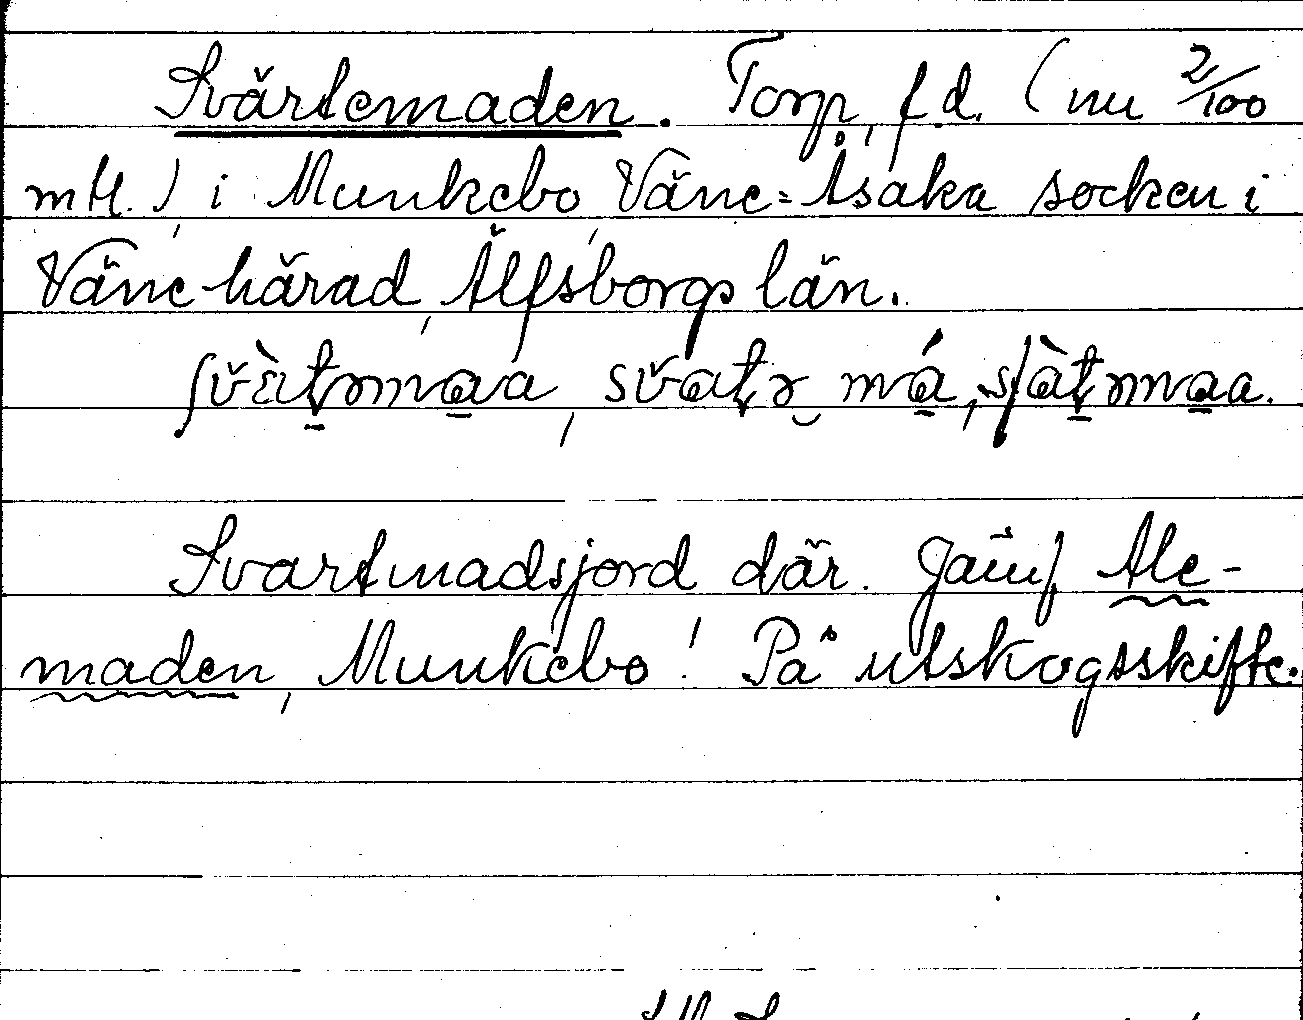 Svärtemaden. Torp, f.d. (nu 2/100
mtl.), i Munkebo, Väne-Åsaka socken i
Väne härad, Älfsborgs län.
Svartmadsjord där. Jämf Ale-
maden, Munkebo! På utskogsskifte.